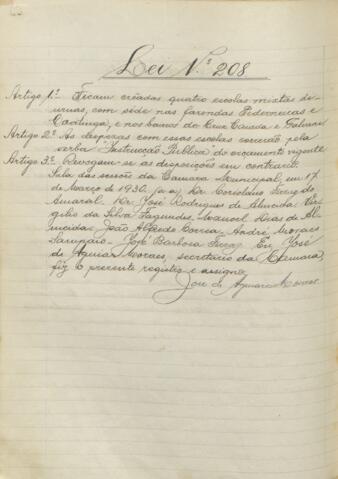 Lei N.º 208
Artigo 1.º Ficam creadas quatro escolas mixtas di-
urnas, com séde nas fazendas Pederneiras e
Caatinga, e nos bairros de Cruz Coberta e Galvão
Artigo 2.º As despezas com essas escolas correrão pela
verba "Instrucção Publica" do orçamento vigente
Artigo 3.º Revogam-se as disposições em contrario.
Sala das sessões da Camara Municipal, em 17
de Março de 1930. (a.a) Dr. Coriolano
Amaral. Dr. José Rodrigues de Almeida. Vir-
gilio da Silva Fagundes. Manoel Dias de Al-
meida. João Alfredo Correa. André Moraes
Sampaio. José Barbosa Ferraz. Eu, José
de Aguiar Moraes, secretario da Camara,
fiz o presente registro e assigno,
José de Aguiar Moraes